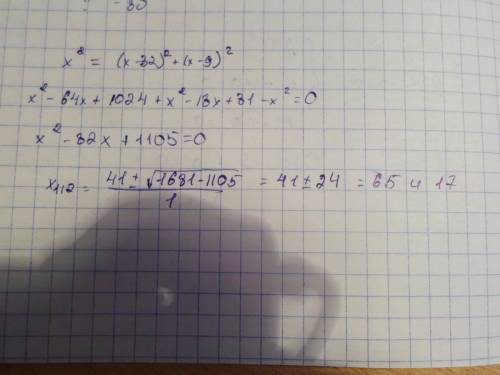 x² = (x-32)² + (x-9)²
x² - 64x + 1024 + x² - 18x + 81 - x² = 0
x² - 82x + 1105 = 0
x₁,₂ = (41 ± √(1681-1105))/1 = 41 ± 24 = 65 и 17